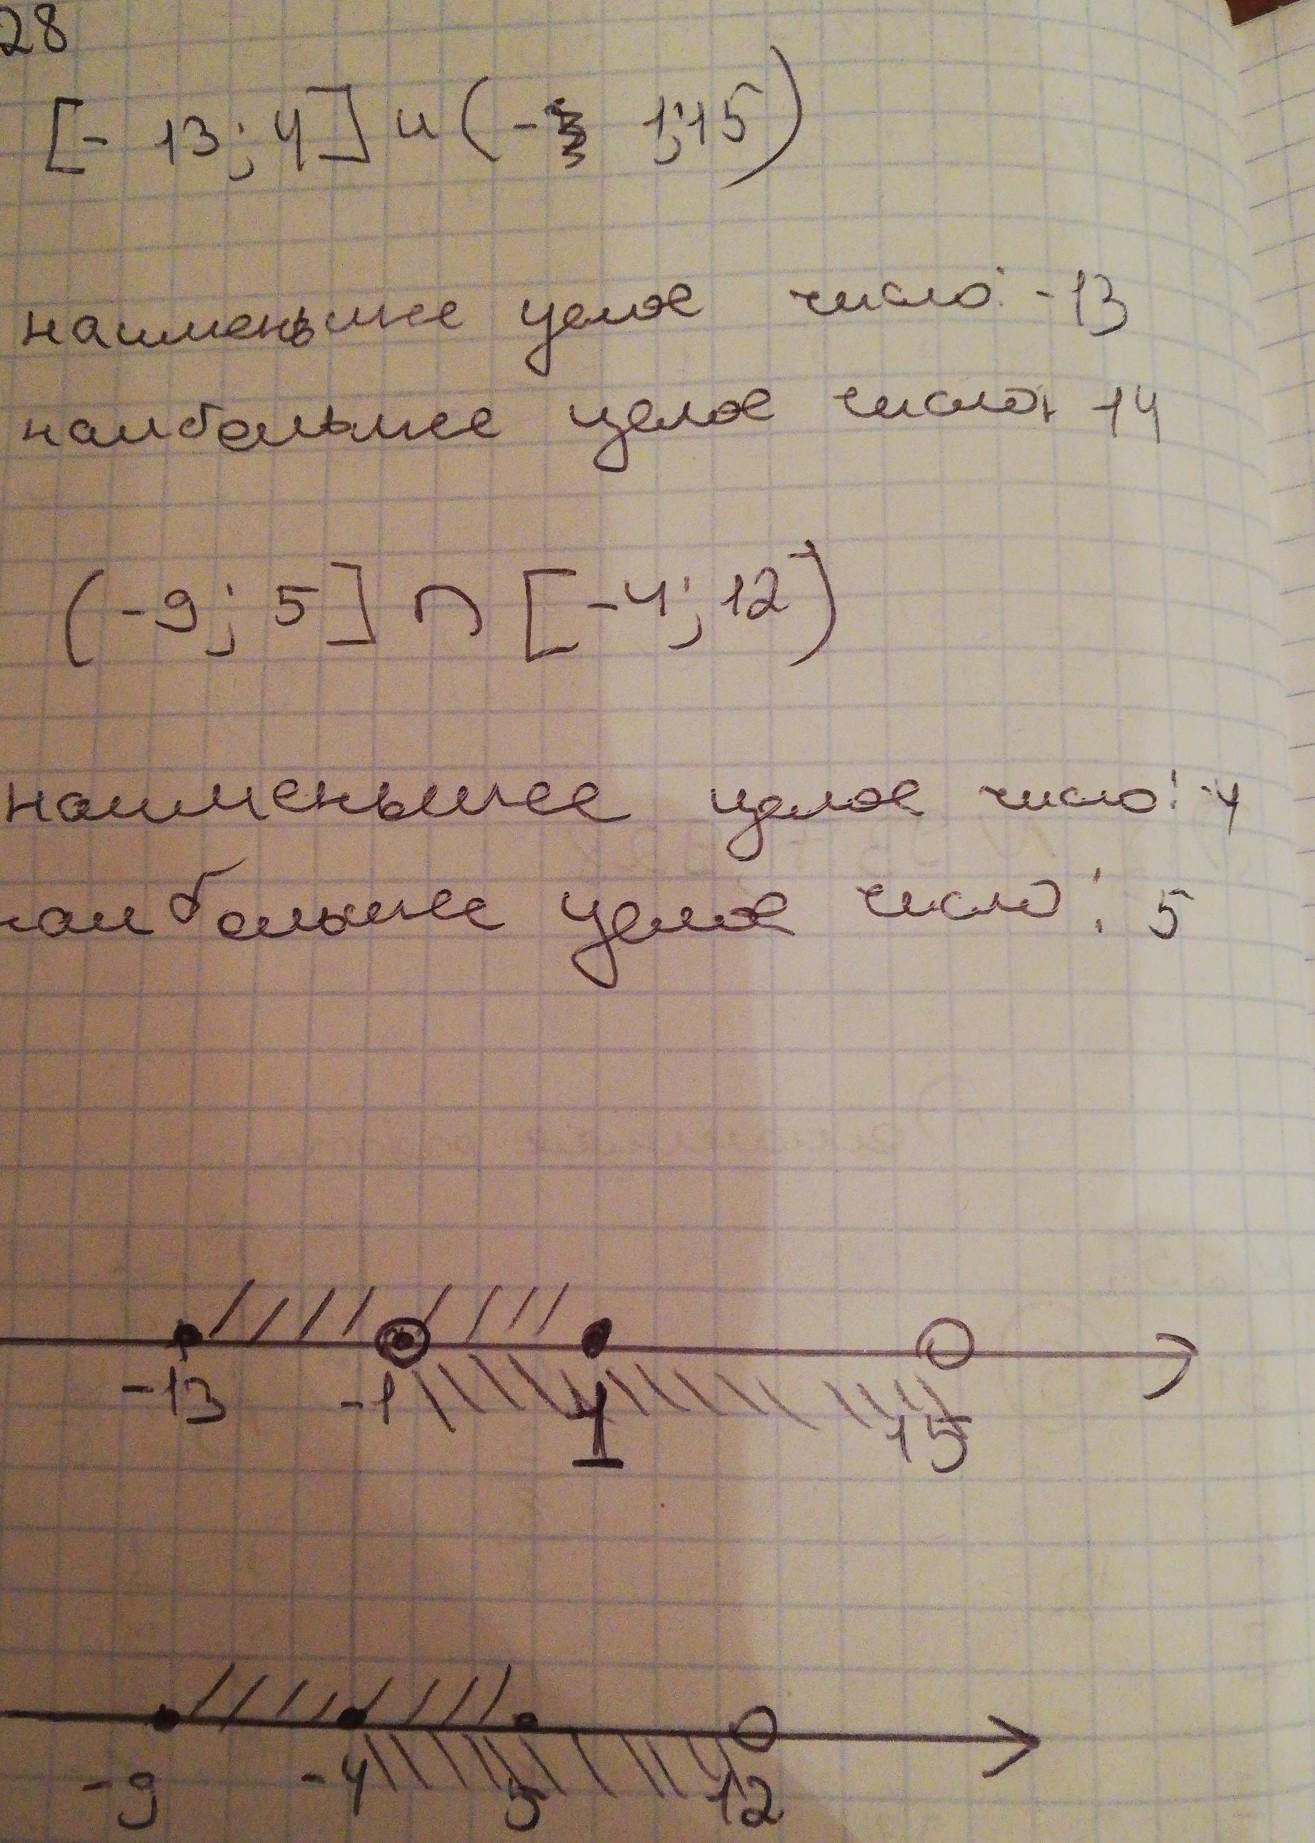 28
[- 13; 4] u (- 1; 15)
наименьшее целое число: -13
наибольшее целое число: 14
(-9; 5] ∩ [-4; 12)
наименьшее целое число: -4
наибольшее целое число: 5
-13 -1 4 15
-9 -4 5 12